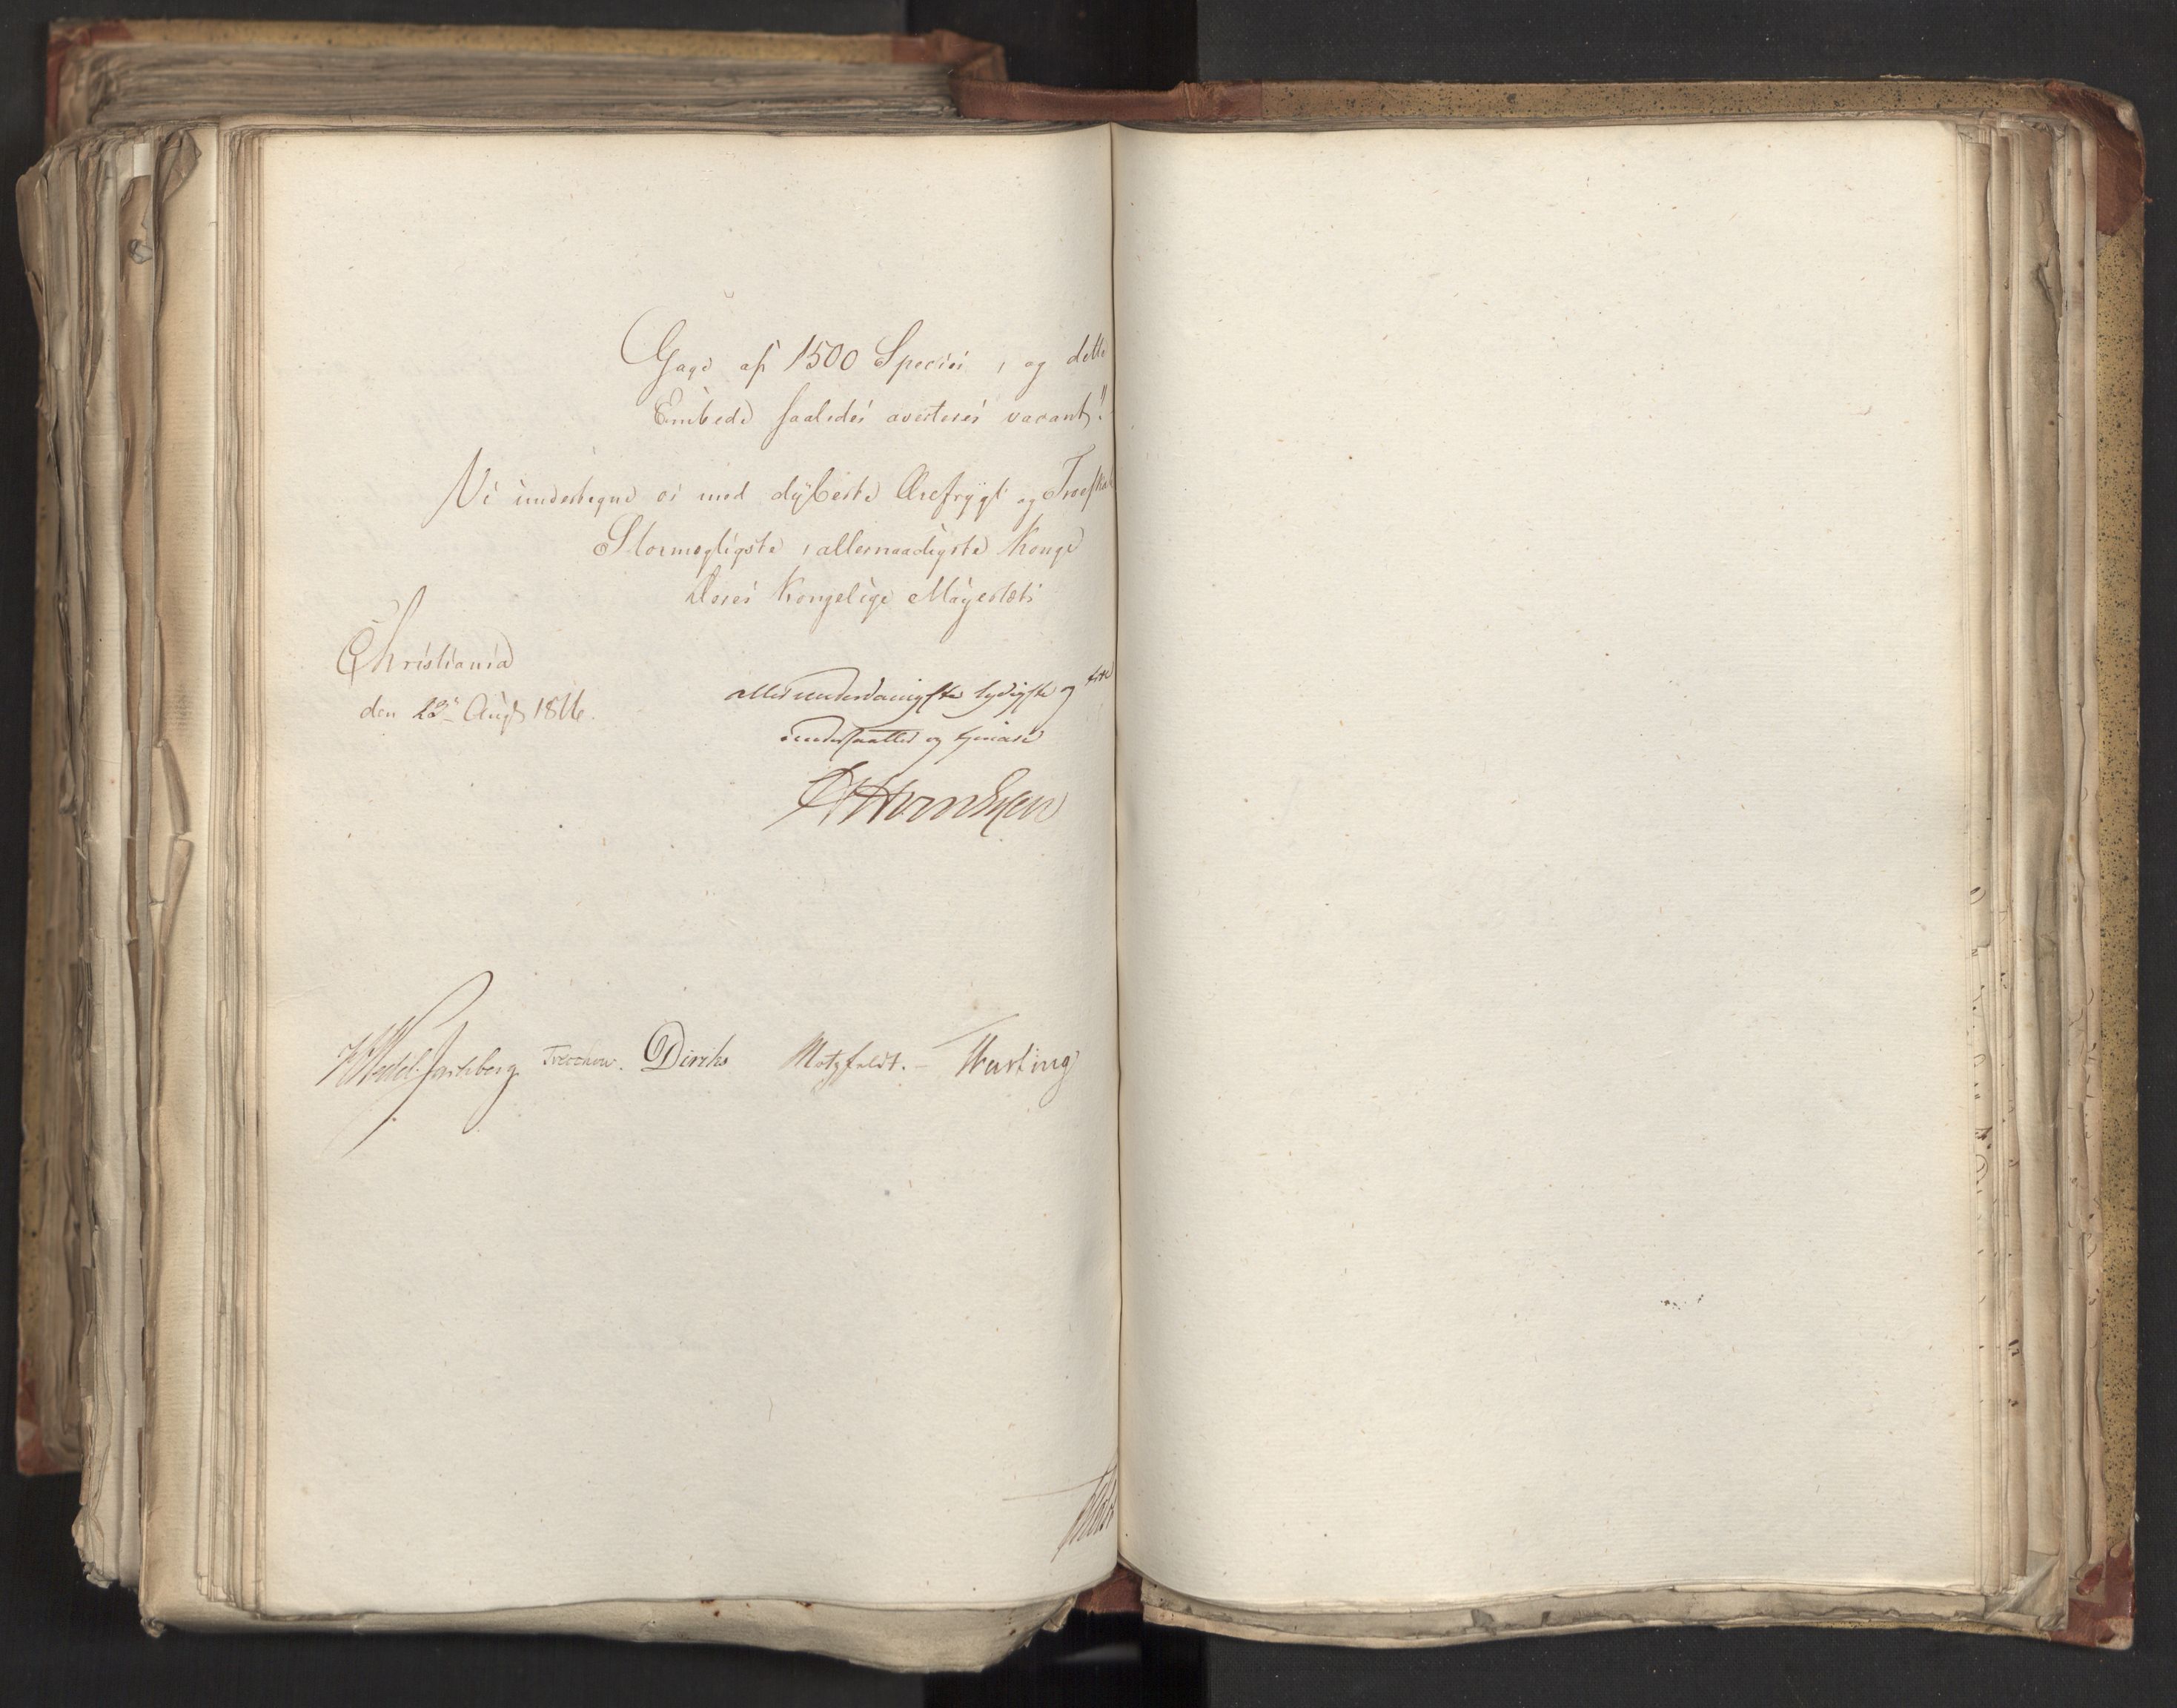 Gage af 1500 Species, og dette
Embede saaledes averteres vacant."
Vi undertegne os med dybeste Ærefrygt og Troeskab
Stormægtigste, allernaadigste Konge
Deres Kongelige Majestæts
Christiania
den 23de Augt 1816.
allerunderdanigste lydigste og
undersaatter og tjenere
Wedel-Jarlsberg Treschow. Diriks Motzfeldt. Hasting